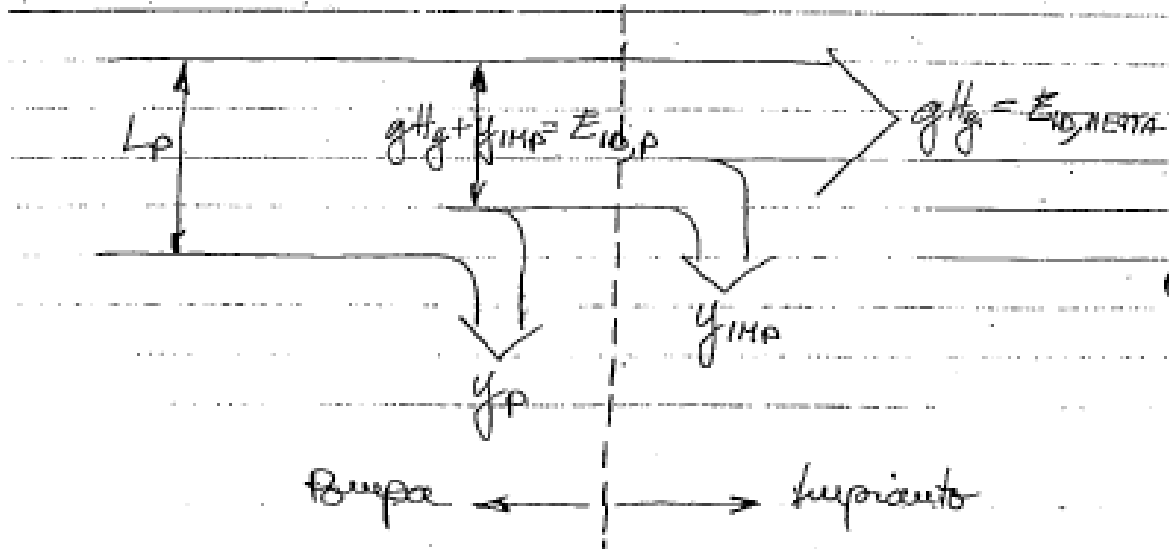 L_P
gH_g + y_IMP = E_ID,P
gH_g = E_ID,NETTA
y_IMP
y_P
Pompa
Impianto